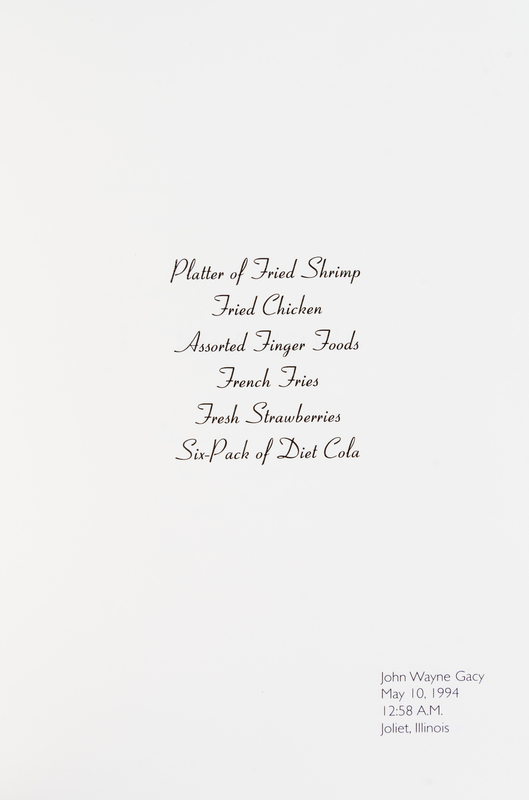 Platter of Fried Shrimp
Fried Chicken
Assorted Finger Foods
French Fries
Fresh Strawberries
Six-Pack of Diet Cola
John Wayne Gacy
May 10, 1994
12:58 A.M.
Joliet, Illinois